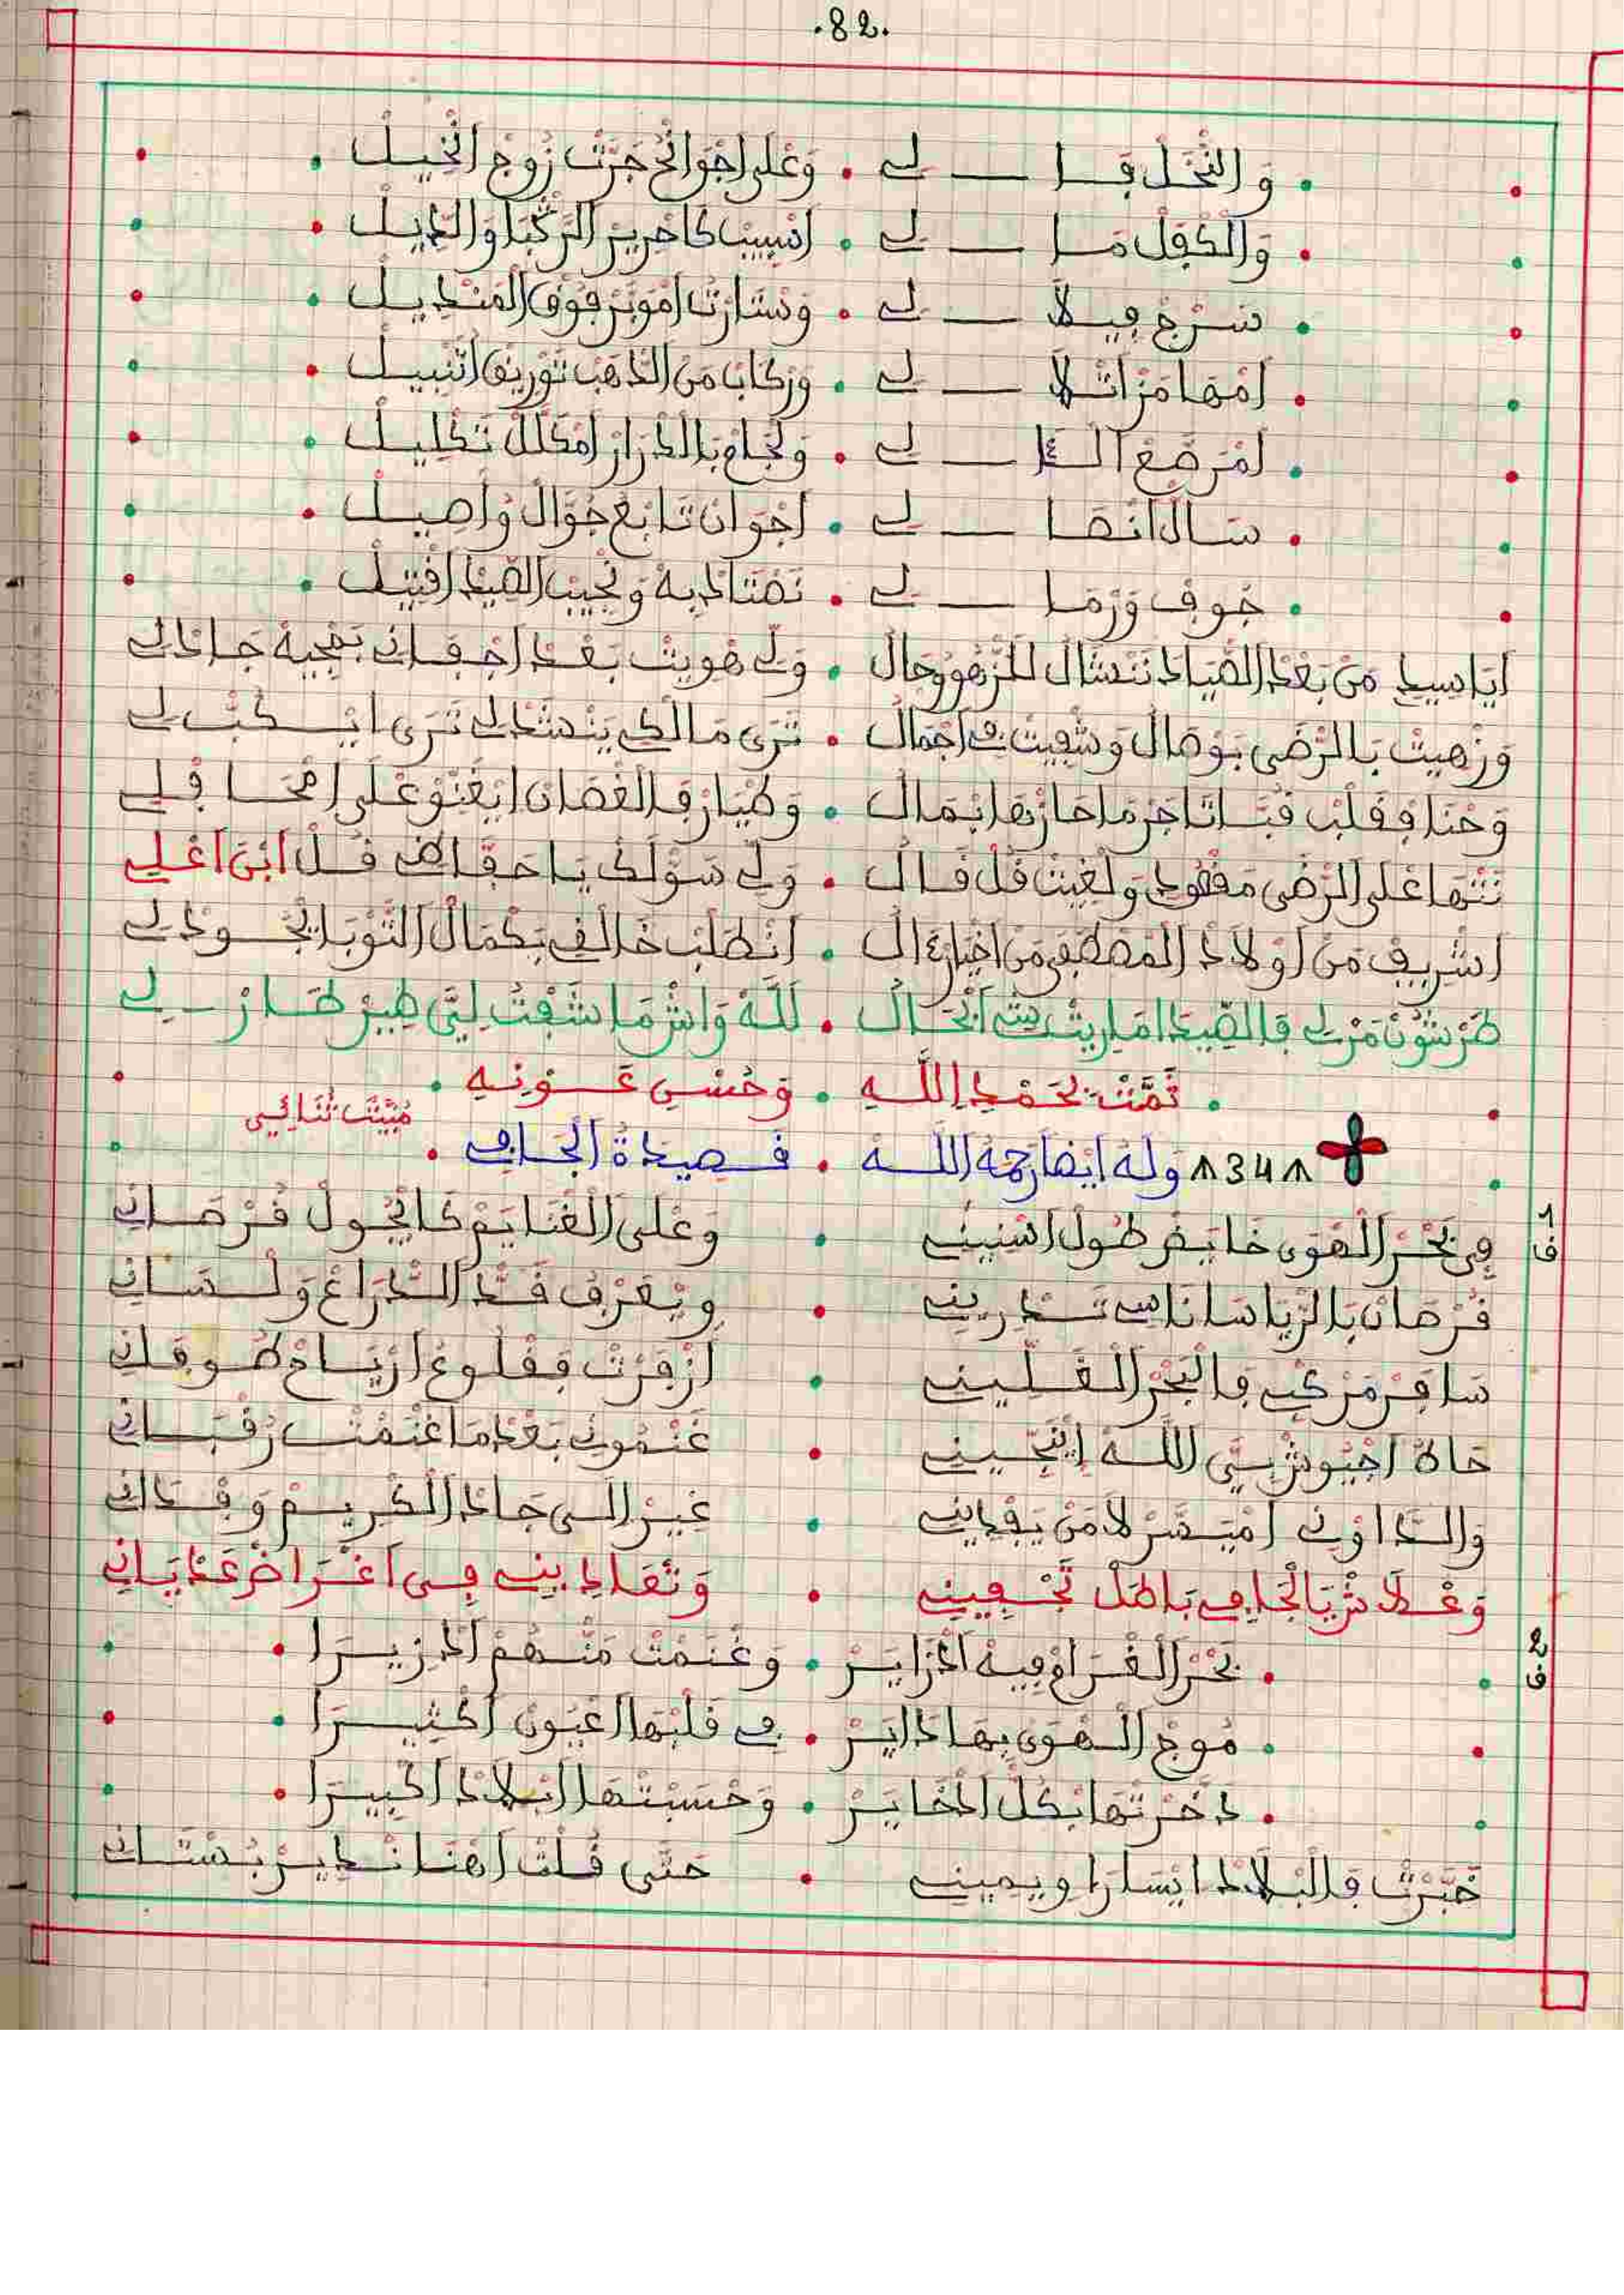 .82.
وَالنَّخَلْ فَا لِي . وَعْلَى اجْوَانْحُ جَرَّتْ زُوجْ الْخَيْلْ
وَالْكْفَلْ مَا لِي . اسْبِيبْ كَاحْرِيرْ الرَّكْبَا وَالذِّيلْ
سَرْجْ فِيلاَ لِي . وَسْتَارْتْ امُوبَرْ فُوقْ الْمَنْدِيلْ
لِي . وَرْكَابْ مَنْ الذَّهَبْ تَوْرِيقْ انْبِيلْ
امْرَصَّعْ لِي . وَلْجَامْ بَالدْرَارْ امْكَلَّلْ تَكْلِيلْ
سَالْ انْصَا لِي . اجْوَادْ تَابَعْ جُوَّالْ وُاصِيلْ
جَوفْ وَرْمَا لِي . نَصْتَادْ بِهْ وَنْجِيبْ الصِّيدْ اقْتِيلْ
أَيَا سِيدِي مَنْ بَعْدْ الصْيَادْ نَنْشَالْ لَلزّْهُو وُجَالْ . وَلِّي هْوِيتْ بَعْدْ اجْفَانِي بَمْجِيهْ جَادْ لِي
وَزْهِيتْ بَالرّْضَى بَوْصَالُ وَشْفِيتْ فِي اجْمَالُ . تَرَى مَالْكِي يَنْشَدْ لِي تَرَى ايْسَكَّبْ لِي
وَحْنَا فْقَلْبْ قُبَّا تَاجَرْ مَا حَازْهَا بْمَالُ . وَطْيَارْ فَالْغْصَانْ ايْغَنِّيوْ عْلَى امْحَافْلِي
نَنْهَا عْلَى الرّْضَى مَفْقُودْ وَلْغِيتْ قُلْ قَالْ . وَلِّي سَوّْلَكْ يَا حَفَّاظِي قُلْ ابْنَ اعْلِي
اشْرِيفْ مَنْ اوْلاَدْ الْمُصْطَفَى مَنْ اخْيَارْ ءَالُ . انْطَلَبْ خَالْقِي بَكْمَالْ التُّوبَا ايْجُودْ لِي
طَرْشُونْ مَرْلِي فَالصِّيدْ امَارِيتْ شِي ابْحَالُ . لَلَّهْ وَاشْ مَا شَفْتُ لِيَّ طِيرْ طَارْ لِي
تَمَّتْ بِحَمْدِ اللَّهِ . وَحُسْنِ عَوْنِهِ
مُبَيَّتْ ثُنَائِي
34 وله ايضا رحمه اللّه . قصيدة الجافي
ف1 فِي بَحْرْ الْهْوَى خَايَضْ طُولْ اسْنِينِي . وَعْلَى الْغْنَايَمْ كَايْجُولْ قُرْصَانِي
قُرْصَانْ بَالرّْيَاسَا نَاسِي تَدْرِينِي . وِيْعَرْفْ قَدّْ الذّْرَاعْ وَلْسَانِي
سَافَرْ مَرْكْبِي فَالْبْحَرْ الْغَلِّينِي . ازْفَرْتْ فَقْلُوعْ ارْيَاحْ طُوفَانِي
حَادْ اجْيُوشْ سِيَّي اللَّهْ إِنَجِّينِي . غَنْمُونِي بَعْدْ مَا غْنَمْتْ رُقْبَانِي
وَالدَّاوْنِي امْيَسَّرْ لاَ مَنْ يَفْدِينِي . غِيرْ إِلَى جَادْ الْكْرِيمْ وَفْدَانِي
وَعْلاَشْ يَا الْجَافِي بَاطَلْ تَجْفِينِي . وَتْعَادِينِي فِي اغْرَاضْ عَدْيَانِي
ف2 بَحْرْ الْغْرَامْ فِيهْ الْجْزَايَرْ . وَغْنَمْتْ مَنّْهُمْ الْجْزِيرَا
مُوجْ الْهْوَى بِهَا دَايَرْ . فِي قَلْبْهَا اعْيُونْ اكْثِيرَا
دَخَّرْتْهَا بْكُلّْ ادْخَايَرْ . وَحْسَبْتْهَا ابْلاَدْ اكْبِيرَا
خَبَّرْتْ فَالْبْلاَدْ ايْسَارَا وِيمِينِي . حَتَّى قُلْتْ اهْنَا نْدِيرْ بُسْتَانِي